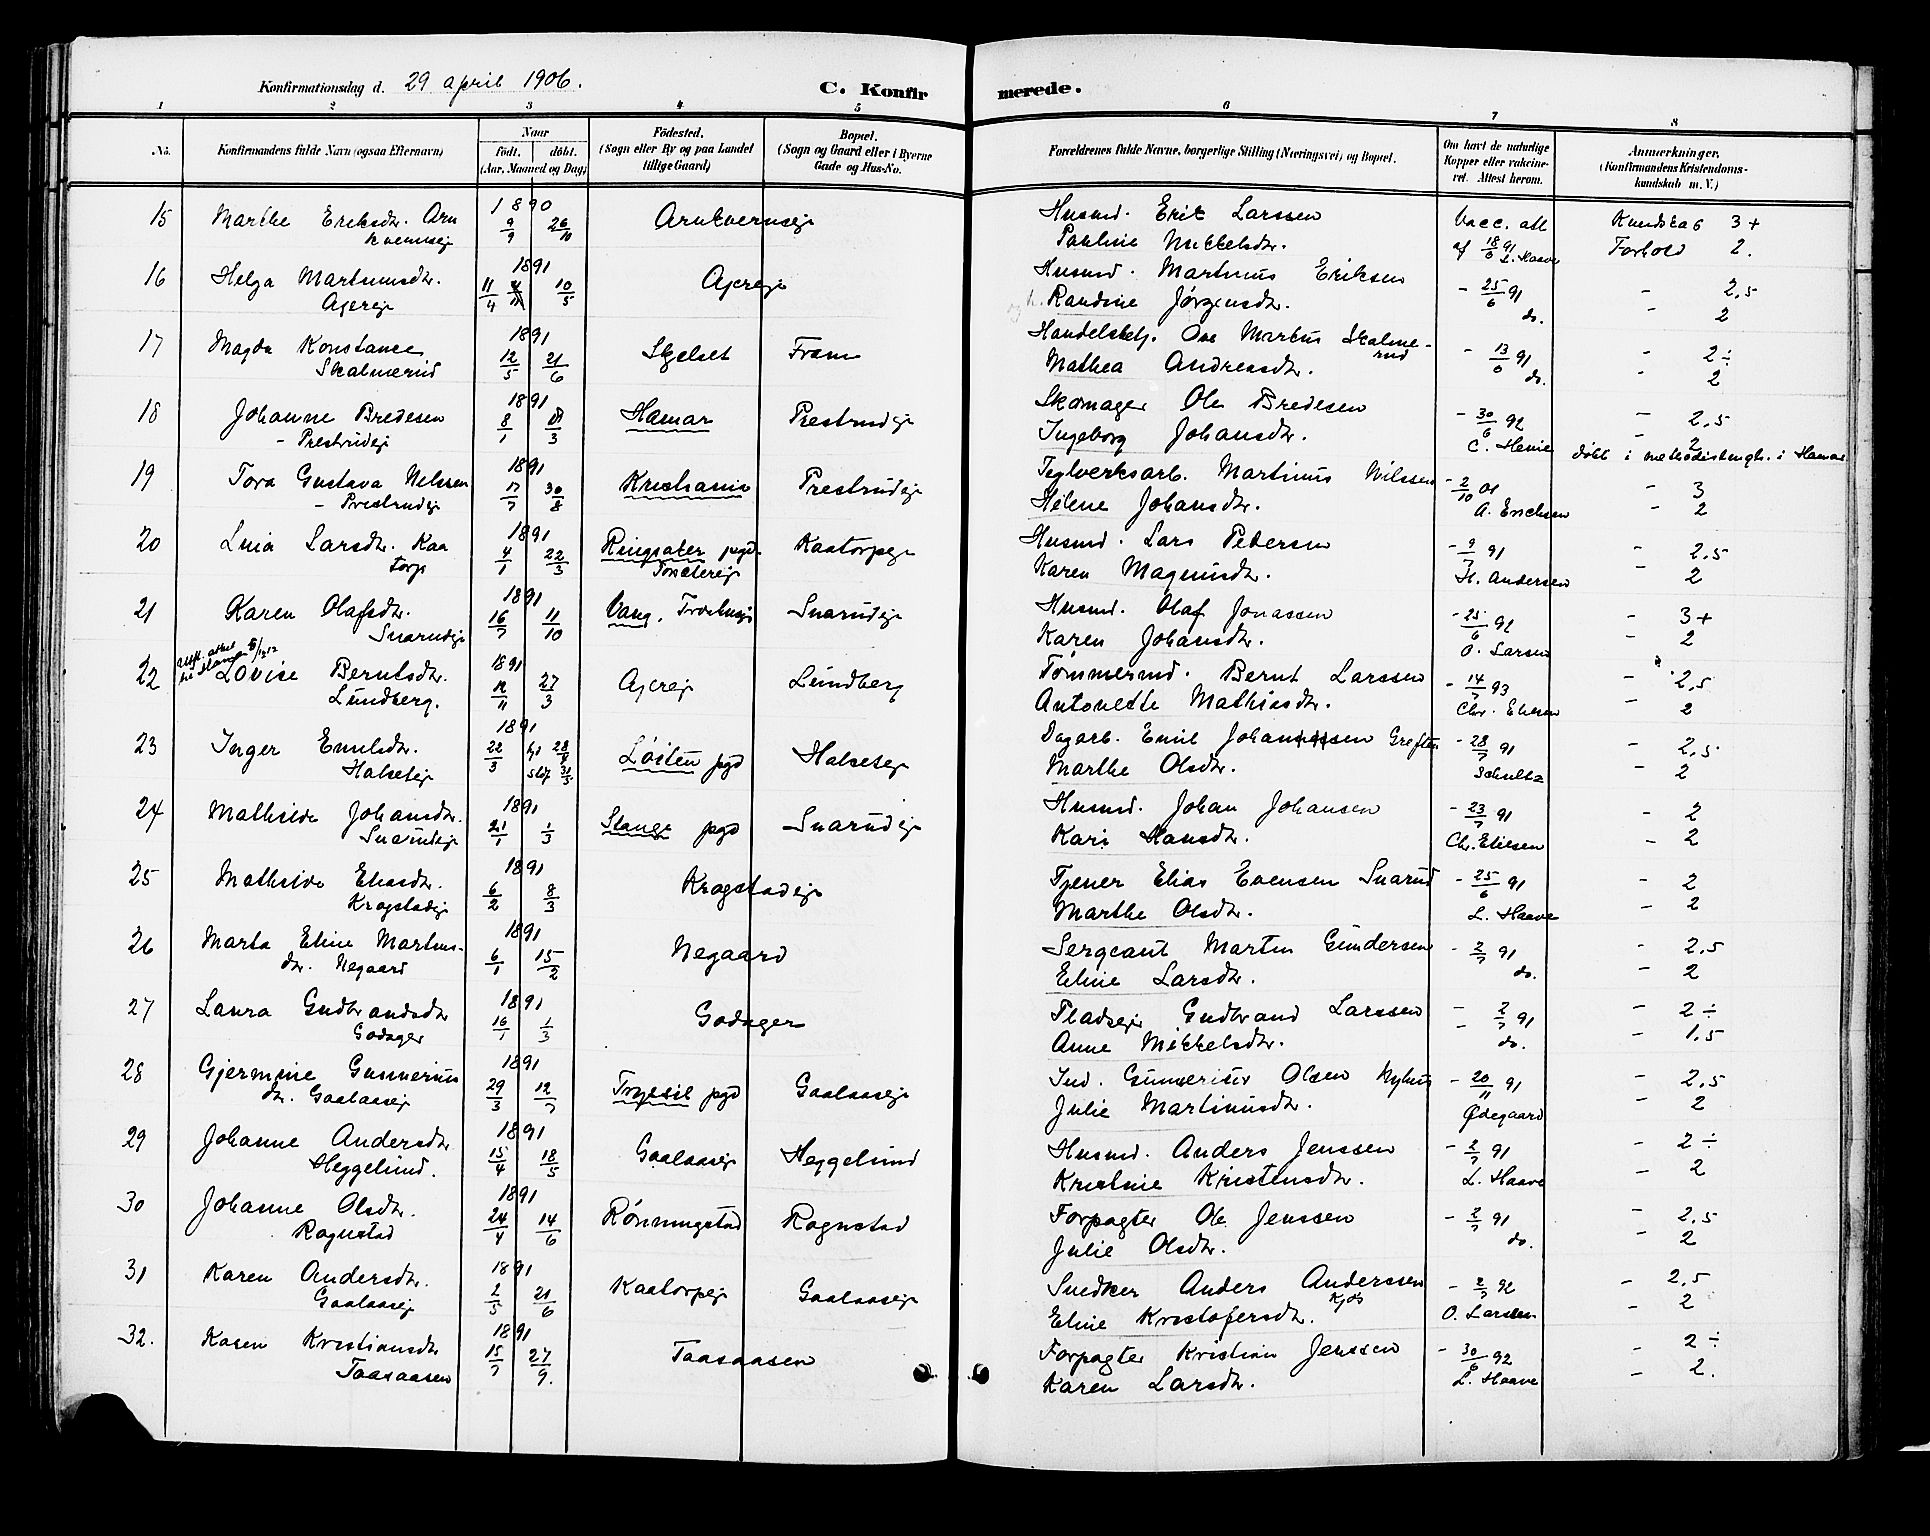 Konfirmationsdag d. 29 april 1906. C. Konfirmerede.
1 2 3 4 5 6 7 8
No. Konfirmandens fulde Navn (ogsaa Efternavn) Naar født. døbt. (Aar, Maaned og Dag) Fødested. (Sogn eller By og paa Landet tillige Gaard) Bopæl. (Sogn og Gaard eller i Byerne Gade og Hus-No. Forældrenes fulde Navne, borgerlige Stilling (Næringsvei) og Bopæl. Om havt de naturlige Kopper eller vakcineret. Attest herom. Anmerkninger. (Konfirmandens Kristendomskundskab m. V.)
15 Marthe Eriksdtr. Arn 1890 Arnkvernseje Husmd. Erik Larssen Vacc. att Kundskab 3+
kvernseje 9/9 26/10 Pauline Mikkelsdtr. af 18/6 91 L. Haave Forhold 2.
16 Helga Martinusdtr. 1891 Ajereje Husmd. Martinus Eriksen - 25/6 91 - 2,5
Ajereje 11/4 10/5 Randine Jørgensdtr. do. - 2
17 Magda Konstance 1891 Skjelset Fram Handelsbetj. Ove Markus Skalmerud - 13/6 91 - 2÷
Skalmerud 12/5 21/6 Mathea Andreasdtr. do. - 2
18 Johanne Bredesen 1891 Hamar Prestrudeje Skomager Ole Bredesen - 30/6 92 - 2,5
- Prestrudeje 8/1 /3 Ingeborg Johansdtr. C. Henie - 2
døbt i methodistmgh. i Hamar
19 Tora Gustava Nilssen 1891 Kristiania Prestrudeje Teglverksarb. Martinus Nilssen - 2/10 01 - 3
- Prestrudeje 17/7 30/8 Helene Johansdtr. A. Erichsen - 2
20 Lina Larsdtr. Kaa 1891 Ringsaker pgd. Kaatorpeje Husmd. Lars Pedersen - 9/7 91 - 2,5
torp 4/1 22/3 Karen Magnusdtr. H. Andersen - 2
21 Karen Olafsdtr. 1891 Vang, Snarudeje Husmd. Olaf Jonassen - 25/6 92 - 3+
Snarudeje 16/7 11/10 Karen Johansdtr. O. Larsen - 2
22 Lovise Berntsdtr. 1891 Ajereje Lundberg Tømmermd. Bernt Larssen - 14/7 93 - 2,5
Lundberg. 12/11 27/3 Antonette Mathiasdtr. Chr. Eliesen - 2
23 Inger Emilsdtr. 1891 Løiten pgd Halseteje Dagarb. Emil Johanssen Greften - 28/7 91 - 2,5
Halseteje 22/3 Marthe Olsdtr. Schultz - 2
24 Mathilde Johansdtr. 1891 Stange pgd Snarudeje Husmd. Johan Johansen - 23/7 91 - 2
Snarudeje 21/1 1/3 Kari Hansdtr. Chr. Eliesen - 2
25 Mathilde Eliasdtr. 1891 Krogstadeje Tjener Elias Evensen Snarud - 25/6 91 - 2
Krogstadeje 6/2 8/3 Marthe Olsdtr. L. Haave - 2
26 Marta Eline Martins- 1891 Negaard Sergeant Martin Gundersen - 2/7 91 - 2,5
dtr. Negaard 6/1 15/2 Eline Larsdtr. do. - 2
27 Laura Gudbrandsdtr 1891 Godager Pladseje Gudbrand Larssen - 2/7 91 - 2÷
Godager 16/1 1/3 Anne Mikkelsdtr. do. - 1,5
28 Gjermine Gunnerius 1891 Trysil pgd Gaalaaseje Ind. Gunnerius Olsen Nyhus - 20/11 91 - 2,5
dtr. Gaalaaseje 29/3 12/7 Julie Martinusdtr. Ødegaard - 2
29 Johanne Andersdtr 1891 Gaalaaseje Heggelund Husmd. Anders Jenssen - 2/7 91 - 2÷
Heggelund. 15/4 18/5 Kristine Kristensdtr. L. Haave - 2
30 Johanne Olsdtr. 1891 Rønningstad Rognstad Forpagter Ole Jenssen - 2/7 91 - 2,5
Rognstad 24/4 14/6 Julie Olsdtr. do. - 2
31 Karen Andersdtr. 1891 Kaatorpeje Gaalaaseje Snedker Anders Anderssen - 2/7 92 - 2,5
Gaalaaseje 2/5 21/6 Eline Kristofersdtr. O. Larsen - 2
32. Karen Kristiansdtr 1891 Taasaasen Forpagter Kristian Jenssen - 30/6 92 - 2÷
Taasaasen 15/7 27/9. Karen Larsdtr. L. Haave - 2.